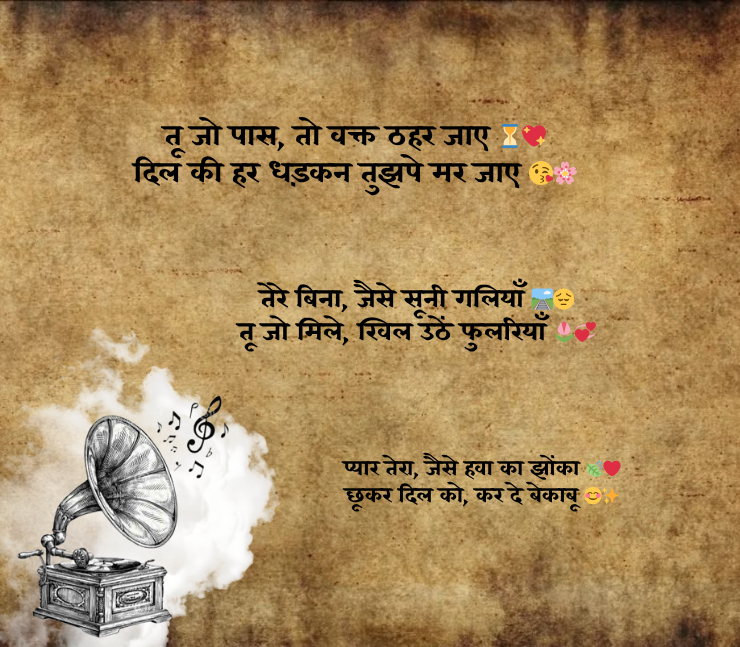 तू जो पास, तो वक्त ठहर जाए ⏳💖
दिल की हर धड़कन तुझपे मर जाए 😘🌸
तेरे बिना, जैसे सूनी गलियाँ 🛤️😔
तू जो मिले, खिल उठें फुलरियाँ 🌷💞
प्यार तेरा, जैसे हवा का झोंका 🍃❤️
छूकर दिल को, कर दे बेकाबू 😊✨